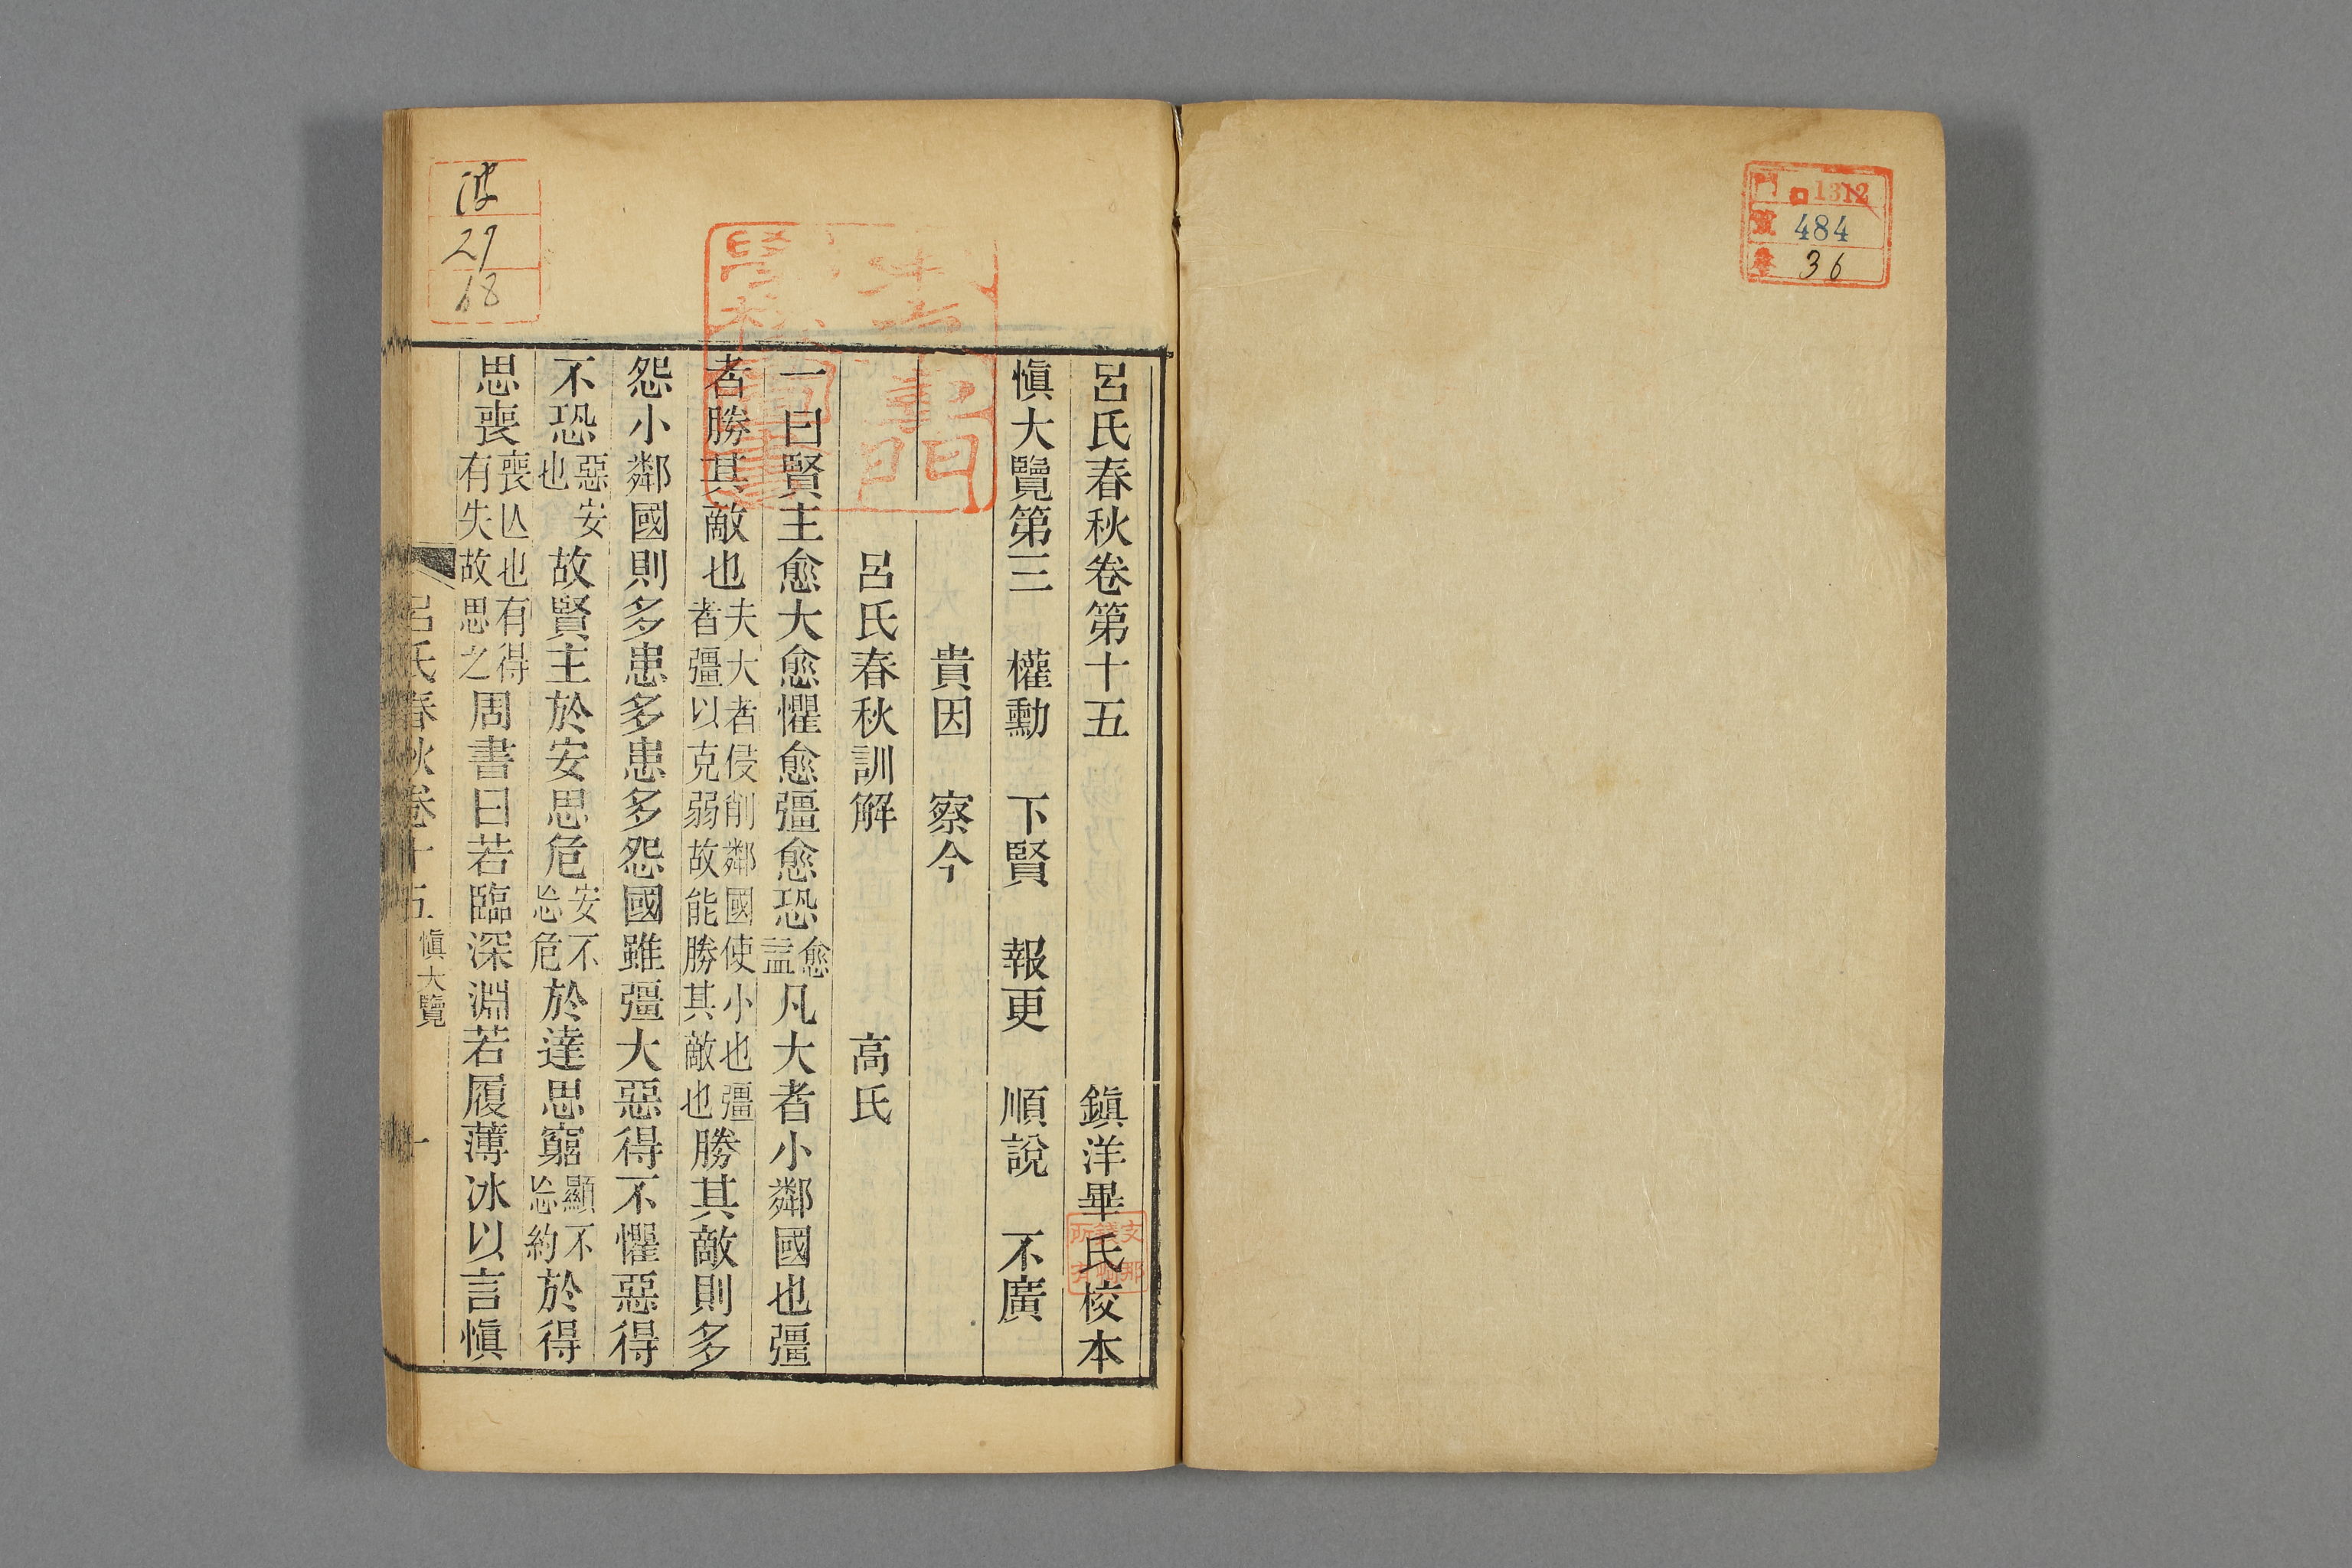 門 ロ 1312
號 484
卷 36
呂氏春秋卷第十五 鎮洋畢氏校本
愼大覽第三 權勳 下賢 報更 順說 不廣
貴因 察今
呂氏春秋訓解 高氏
一曰賢主愈大愈懼愈彊愈恐愈益凡大者小鄰國也彊
者勝其敵也夫大者侵削鄰國使小也彊者彊以克弱故能勝其敵也勝其敵則多
怨小鄰國則多患多患多怨國雖彊大惡得不懼惡得
不恐惡安也故賢主於安思危安不忘危於達思窮顯不忘約於得
思喪喪亾也有得有失故思之周書曰若臨深淵若履薄冰以言愼
呂氏春秋卷十五 愼大覽 一
29
18